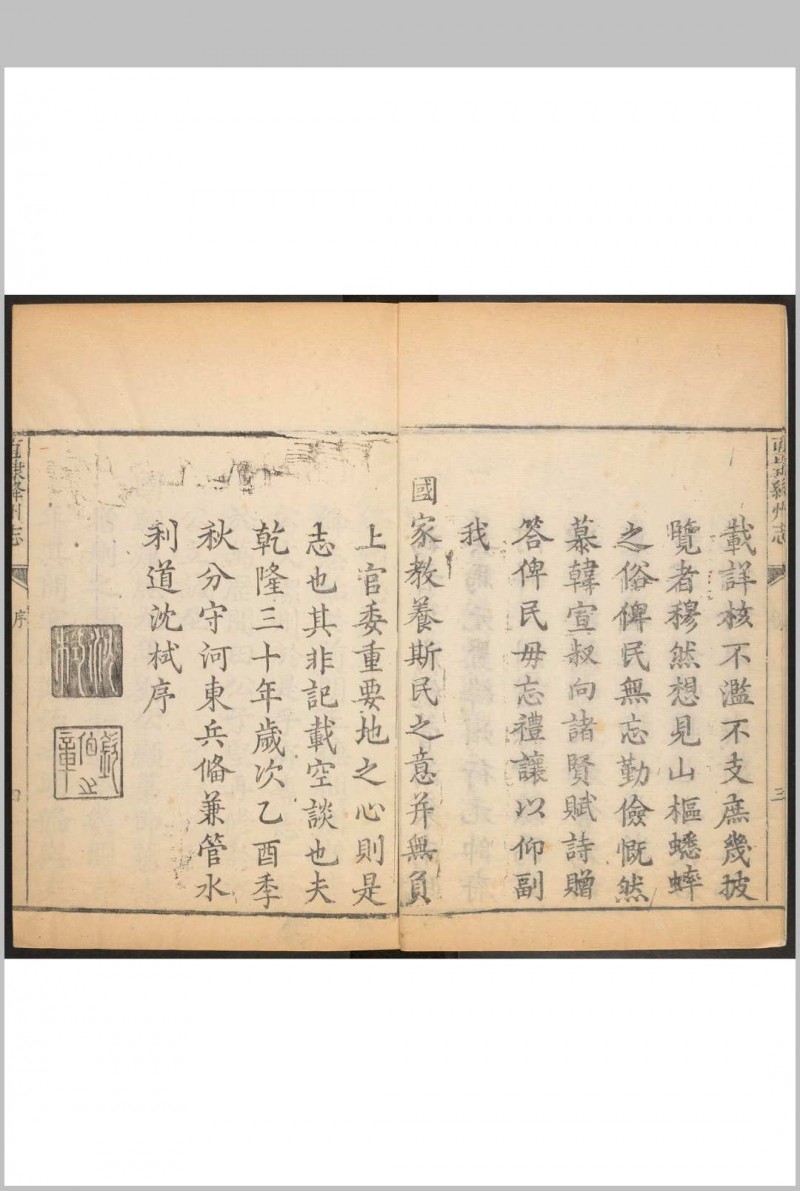 直隸絳州志
三
載詳核不濫不支庶幾披
覽者穆然想見山樞蟋蟀
之俗俾民無忘勤儉慨然
慕韓宣叔向諸賢賦詩贈
答俾民毋忘禮讓以仰副
我
國家教養斯民之意并無負
上官委重要地之心則是
志也其非記載空談也夫
乾隆三十年歲次乙酉季
秋分守河東兵俻兼管水
利道沈栻序
直隸絳州志
序